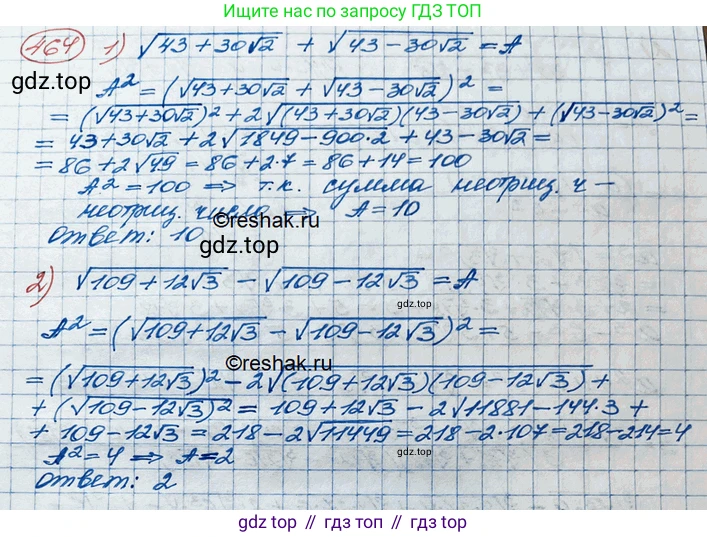 Ищите нас по запросу ГДЗ ТОП
464 1) √43+30√2 + √43-30√2 = A
gdz.top
A² = (√43+30√2 + √43-30√2)² =
= (√43+30√2)² + 2√(43+30√2)(43-30√2) + (√43-30√2)² =
= 43+30√2 + 2√1849-900·2 + 43-30√2 =
= 86+2√49 = 86+2·7 = 86+14 = 100
A² = 100 ⇒ т.к. сумма неотриц. ч-
неотриц. число ⇒ A=10
©reshak.ru
Ответ: 10
gdz.top
2) √109+12√3 - √109-12√3 = A
gdz.top
A² = (√109+12√3 - √109-12√3)² =
©reshak.ru
= (√109+12√3)² - 2√(109+12√3)(109-12√3) +
+ (√109-12√3)² = 109+12√3 - 2√11881-144·3 +
+ 109-12√3 = 218-2√11449 = 218-2·107 = 218-214 = 4
gdz.top
A² = 4 ⇒ A=2
Ответ: 2
gdz.top // гдз топ // гдз.топ